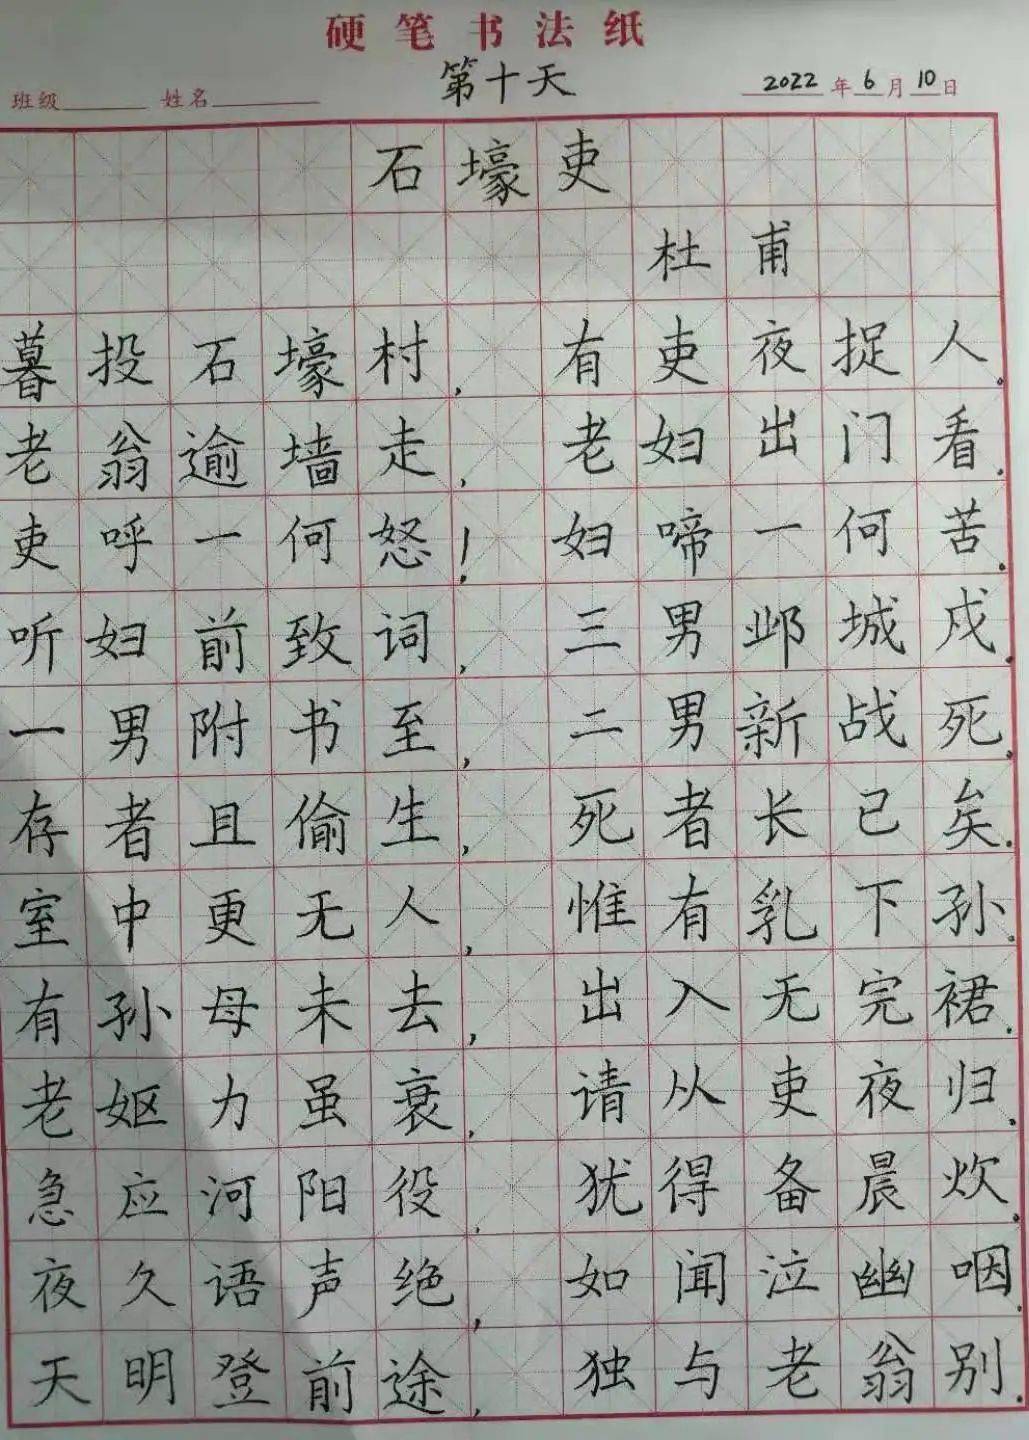 硬笔书法纸
第十天
班级 姓名 2022年6月10日
石壕吏
杜甫
暮投石壕村,有吏夜捉人.
老翁逾墙走,老妇出门看.
吏呼一何怒!妇啼一何苦.
听妇前致词,三男邺城戍.
一男附书至,二男新战死.
存者且偷生,死者长已矣.
室中更无人,惟有乳下孙.
有孙母未去,出入无完裙.
老妪力虽衰,请从吏夜归.
急应河阳役,犹得备晨炊.
夜久语声绝,如闻泣幽咽.
天明登前途,独与老翁别.